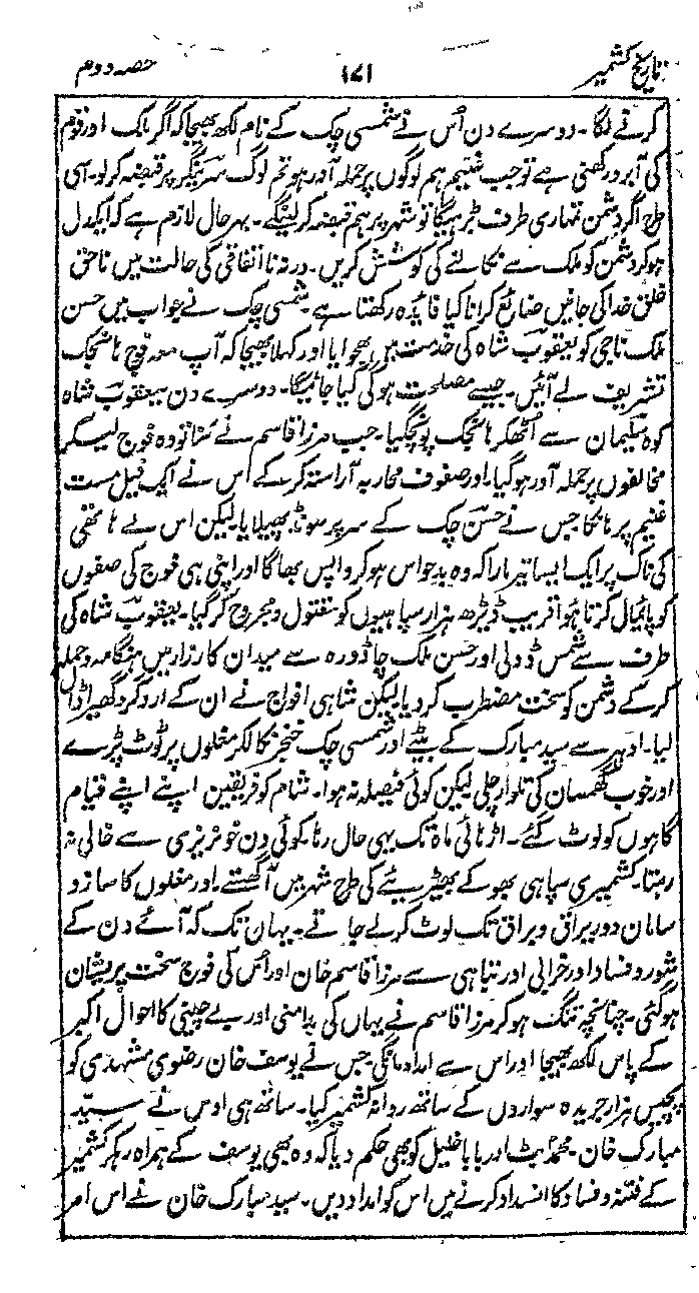 تاریخ کشمیر
۱۷۱
حصہ دوم
کرنے لگا۔ دوسرے دن اُس نے شمسی چک کے نام لکھ بھیجا کہ اگر ملک اور قوم
کی آبرو رکھنی ہے تو جب غنیم ہم لوگوں پر حملہ آور ہو تم لوگ سرینگر پر قبضہ کرلو۔ اسی
طرح اگر دشمن تمہاری طرف بڑہیگا تو شہر پر ہم قبضہ کرلینگے۔ بہرحال لازم ہے کہ ایکدل
ہوکر دشمن کو ملک سے نکالنے کی کوشش کریں۔ ورنہ نااتفاقی کی حالت میں ناحق
خلق خدا کی جانیں ضائع کرانا کیا فایدہ رکھتا ہے۔ شمسی چک نے جواب میں حسن
ملک ناجی کو یعقوب شاہ کی خدمت میں بھجوایا اور کہلا بھیجا کہ آپ معہ فوج ہانجک
تشریف لے آئیں۔ جیسے مصلحت ہوگی کیا جائیگا۔ دوسرے دن یعقوب شاہ
کوہ سلیمان سے اُٹھکر ہانجک پہونچگیا۔ جب مرزا قاسم نے سُنا تو وہ فوج لیکر
مخالفوں پر حملہ آور ہوگیا۔ اور صفوف محاربہ آراستہ کرکے اس نے ایک فیل مست
غنیم پر ہانکا جس نے حسن چک کے سر پر سونڈ پھیلایا۔ لیکن اس نے ہاتھی
کی ناک پر ایک ایسا تیر مارا کہ وہ بدحواس ہوکر واپس بھاگا اور اپنی ہی فوج کی صفوں
کو پائمال کرتا ہوا قریب ڈیڑھ ہزار سپاہیوں کو مقتول و مجروح کرگیا۔ یعقوب شاہ کی
طرف سے شمس ڈولی اور حسن ملک چاڈورہ سے میدان کارزار میں ہنگامہ و حملہ
کرکے دشمن کو سخت مضطرب کردیا۔ لیکن شاہی افواج نے ان کے اردگرد گھیرا ڈال
لیا۔ ادہر سے سید مبارک کے بیٹے اور شمسی چک خنجر نکالکر مغلوں پر ٹوٹ پڑے
اور خوب گھمسان کی تلوار چلی لیکن کوئی فیصلہ نہ ہوا۔ شام کو فریقین اپنے اپنے قیام
گاہوں کو لوٹ گئے۔ اڑہائی ماہ تک یہی حال رہا۔ کوئی دن خونریزی سے خالی نہ
رہتا۔ کشمیری سپاہی بھوکے بھیڑیئے کی طرح شہر میں آگھستے۔ اور مغلوں کا سازو
سامان دور یراق ویراق تک لوٹ کر لے جاتے۔ یہاں تک کہ آئے دن کے
شور و فساد اور خرابی اور تباہی سے مرزا قاسم خان اور اُس کی فوج سخت پریشان
ہوگئی۔ چنانچہ تنگ ہوکر مرزا قاسم نے یہاں کی بدامنی اور بے چینی کا احوال اکبر
کے پاس لکھ بھیجا اور اس سے امداد مانگی جس نے یوسف خان رضوی مشہدی کو
پچیس ہزار جریدہ سواروں کے ساتھ روانہ کشمیر کیا۔ ساتھ ہی اوس نے سید
مبارک خان۔ محمد بٹ اور بابا خلیل کو بھی حکم دیا کہ وہ بھی یوسف کے ہمراہ رہکر کشمیر
کے فتنہ و فساد کا انسداد کرنے میں اس کو امداد دیں۔ سید مبارک خان نے اس امر